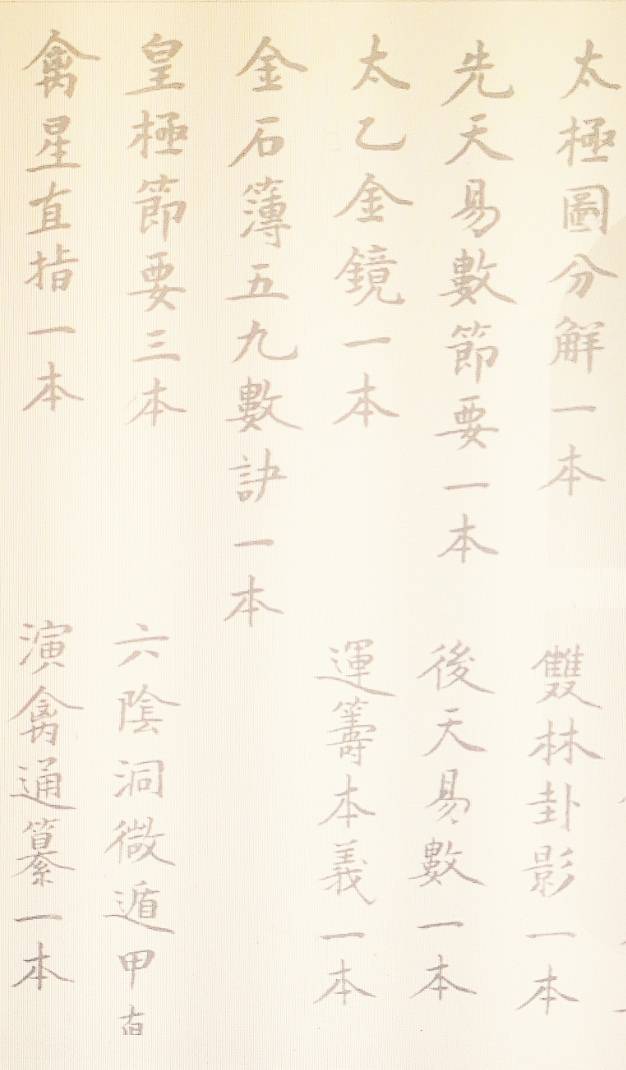 太極圖分解一本
雙林卦影一本
先天易數節要一本
後天易數一本
太乙金鏡一本
運籌本義一本
金石簿五九數訣一本
皇極節要三本
六陰洞微遁甲
禽星直指一本
演禽通纂一本